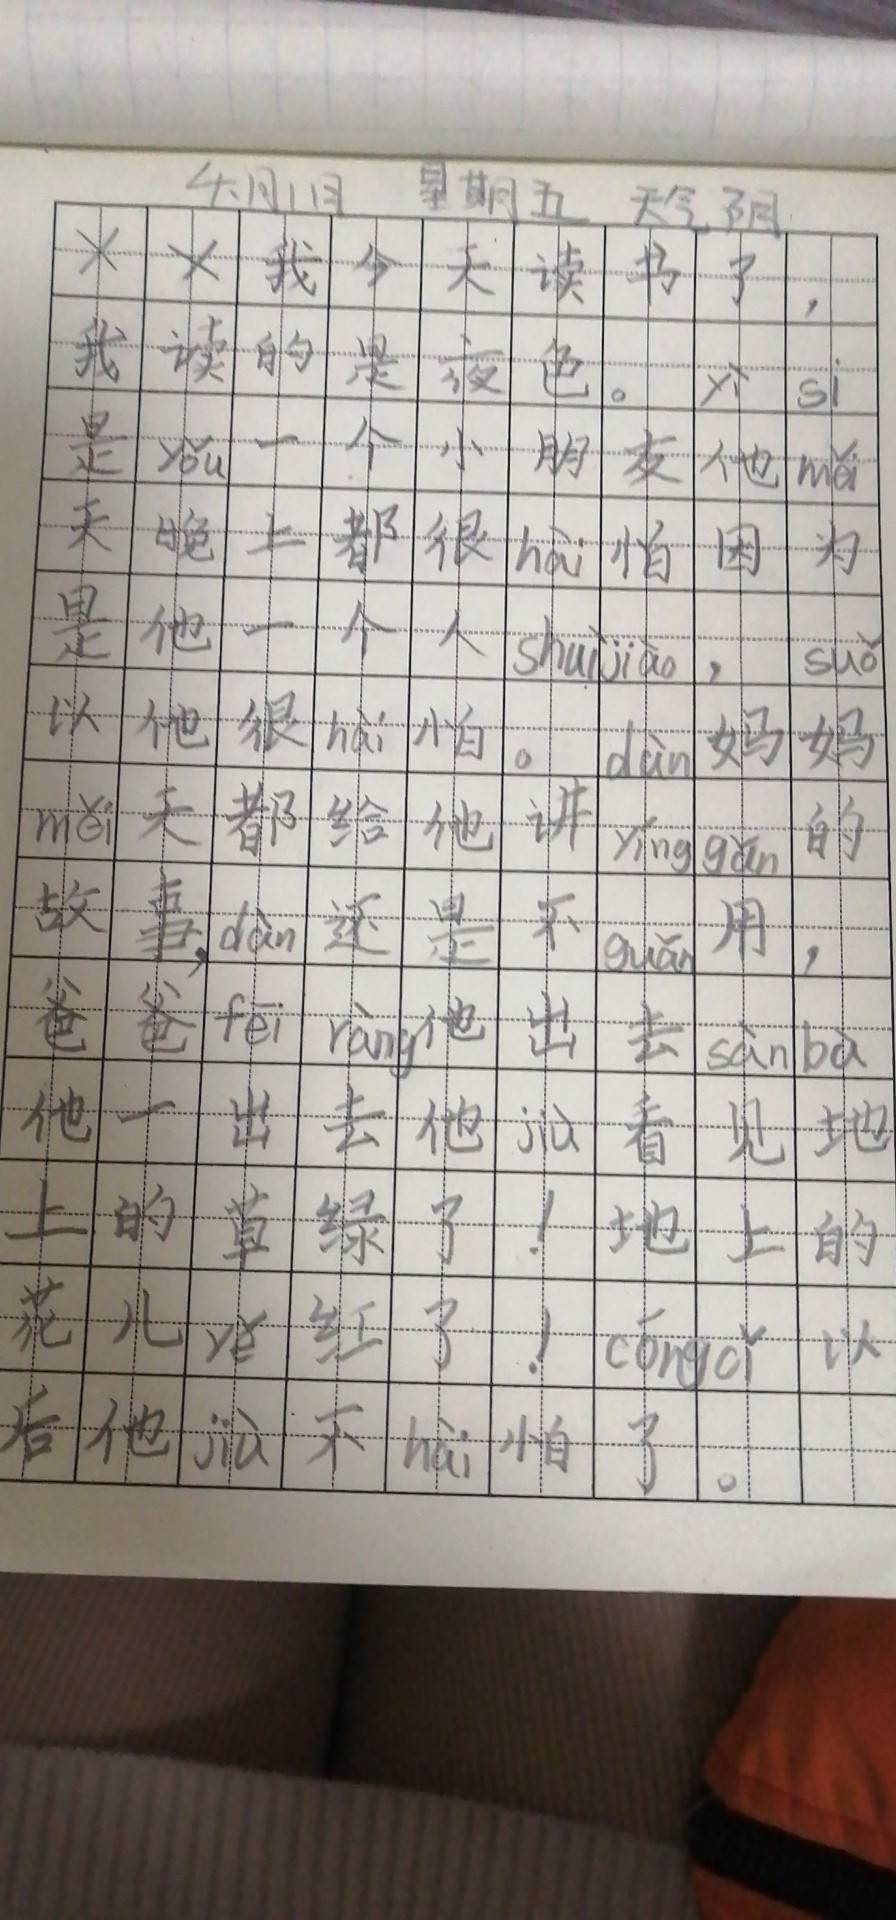 4月1日 星期五 天气阴
××我今天读书了，
我读的是夜色。yì si
是yǒu一个小朋友他měi
天晚上都很hài怕因为
是他一个人shuìjiào，suǒ
以他很hài怕。dàn妈妈
měi天都给他讲yǒnggǎn的
故事，dàn还是不guǎn用，
爸爸fēi ràng他出去sànbù
他一出去他jiù看见地
上的草绿了！地上的
花儿yě红了！cóngcǐ以
后他jiù不hài怕了。